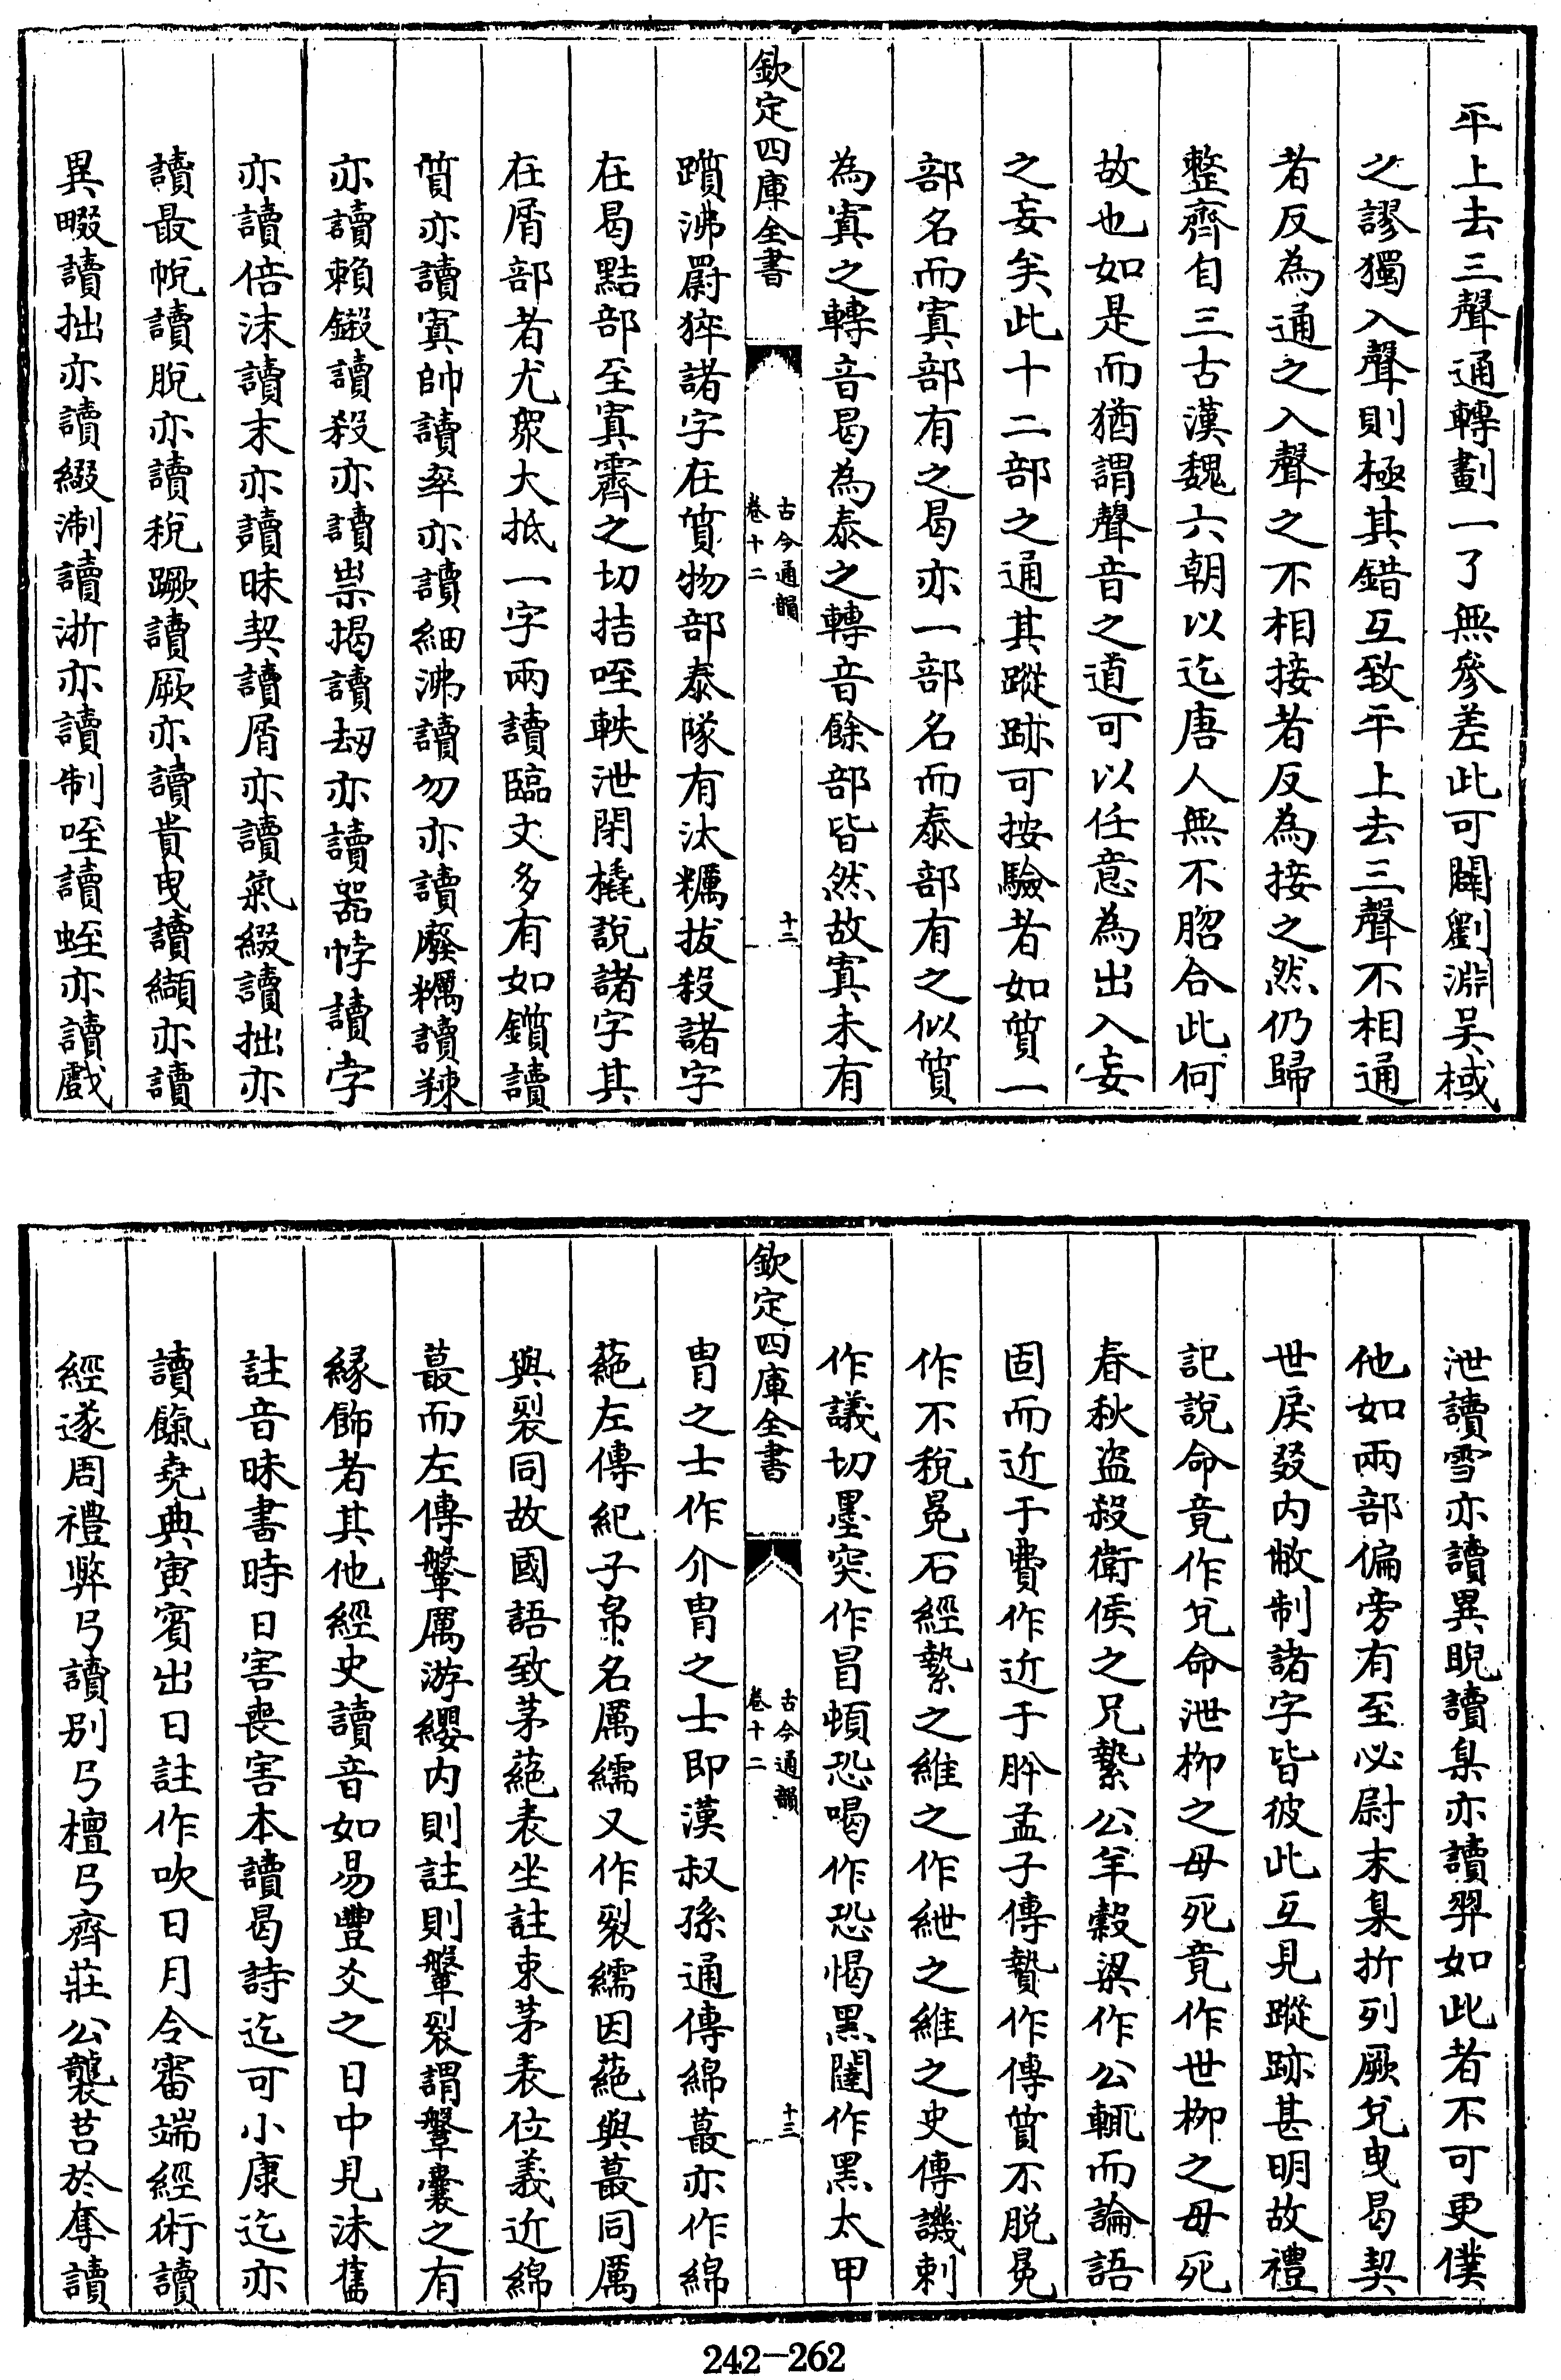 平上去三聲通轉劃一了無參差此可闢劉淵吳棫
之謬獨入聲則極其錯互致平上去三聲不相通
者反為通之入聲之不相接者反為接之然仍歸
整齊自三古漢魏六朝以迄唐人無不脗合此何
故也如是而猶謂聲音之道可以任意為出入妄
之妄矣此十二部之通其蹤跡可按驗者如質一
部名而寘部有之曷亦一部名而泰部有之似質
為寘之轉音曷為泰之轉音餘部皆然故寘未有
欽定四庫全書
古今通韻
卷十二
十二
躓沸罻猝諸字在質物部泰隊有汰糲拔殺諸字
在曷黠部至寘霽之切拮咥軼泄閉橇說諸字其
在屑部者尤眾大抵一字兩讀臨文多有如鑕讀
質亦讀寘帥讀率亦讀細沸讀勿亦讀廢糲讀辣
亦讀賴鎩讀殺亦讀祟揭讀刼亦讀器悖讀孛
亦讀倍沫讀末亦讀昧契讀屑亦讀氣綴讀拙亦
讀最帨讀脫亦讀稅蹶讀厥亦讀貴曳讀纈亦讀
異畷讀拙亦讀綴淛讀浙亦讀制咥讀蛭亦讀戲
泄讀雪亦讀異睨讀臬亦讀羿如此者不可更僕
他如兩部偏旁有至必尉末臬折列厥兌曳曷契
世戾叕內敝制諸字皆彼此互見蹤跡甚明故禮
記說命竟作兌命泄柳之母死竟作世柳之母死
春秋盜殺衛侯之兄縶公羊穀梁作公輒而論語
固而近于費作近于肸孟子傳贄作傳質不脫冕
作不稅冕石經縶之維之作紲之維之史傳譏刺
作議切墨突作冒頓恐喝作恐愒黑闥作黑太甲
欽定四庫全書
古今通韻
卷十二
十三
胄之士作介胄之士即漢叔孫通傳綿蕞亦作綿
蕝左傳紀子帛名厲繻又作裂繻因蕝與蕞同厲
與裂同故國語致茅蕝表坐註束茅表位義近綿
蕞而左傳鞶厲游纓內則註則鞶裂謂鞶囊之有
緣飾者其他經史讀音如易豐爻之日中見沬舊
註音昧書時日害喪害本讀曷詩迄可小康迄亦
讀餼堯典寅賓出日註作吹日月令審端經術讀
經遂周禮弊弓讀别弓檀弓齊莊公襲莒於奪讀
242-262